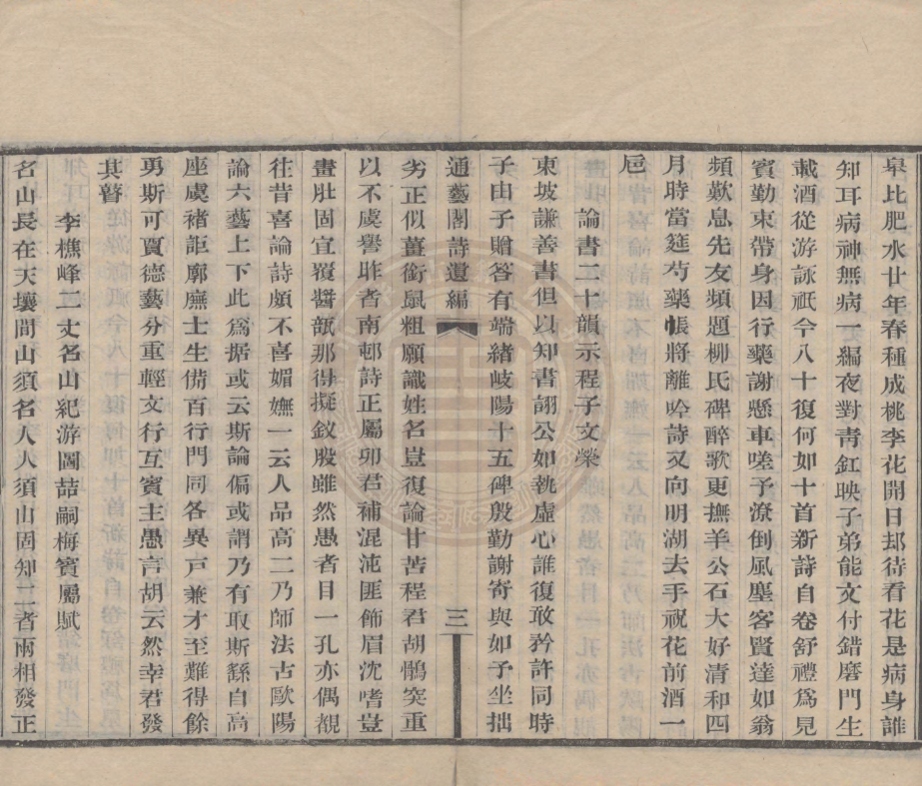 皋比肥水廿年春種成桃李花開日却待看花是病身誰
知耳病神無病一編夜對青釭映子弟能文付錯磨門生
載酒從游詠祇今八十復何如十首新詩自卷舒禮為見
賓勤束帶身因行藥謝懸車嗟予潦倒風塵客賢達如翁
頻歎息先友頻題柳氏碑醉歌更撫羊公石大好清和四
月時當筵芍藥帳將離吟詩又向明湖去手祝花前酒一
巵
論書二十韻示程子文榮
東坡謙善書但以知書詡公如執虛心誰復敢矜許同時
子由子贈答有端緒岐陽十五碑殷勤謝寄與如予坐拙
通藝閣詩遺編
三
劣正似薑銜鼠粗願識姓名豈復論甘苦程君胡懰突重
以不虞譽昨者南邨詩正屬卯君補混沌匪飾眉沈嗜豈
畫肚固宜覆醬瓿那得擬釵股雖然愚者目一孔亦偶覩
往昔喜論詩頗不喜媚嫵一云人品高二乃師法古歐陽
論六藝上下此爲据或云斯論偏或謂乃有取斯繇自高
座虞褚詎廓廡士生備百行門同各異戸兼才至難得餘
勇斯可賈德藝分重輕文行互賓主愚言胡云然幸君發
其瞽
李樵峰二丈名山紀游圖喆嗣梅賓屬賦
名山長在天壤間山須名人人須山固知二者兩相發正